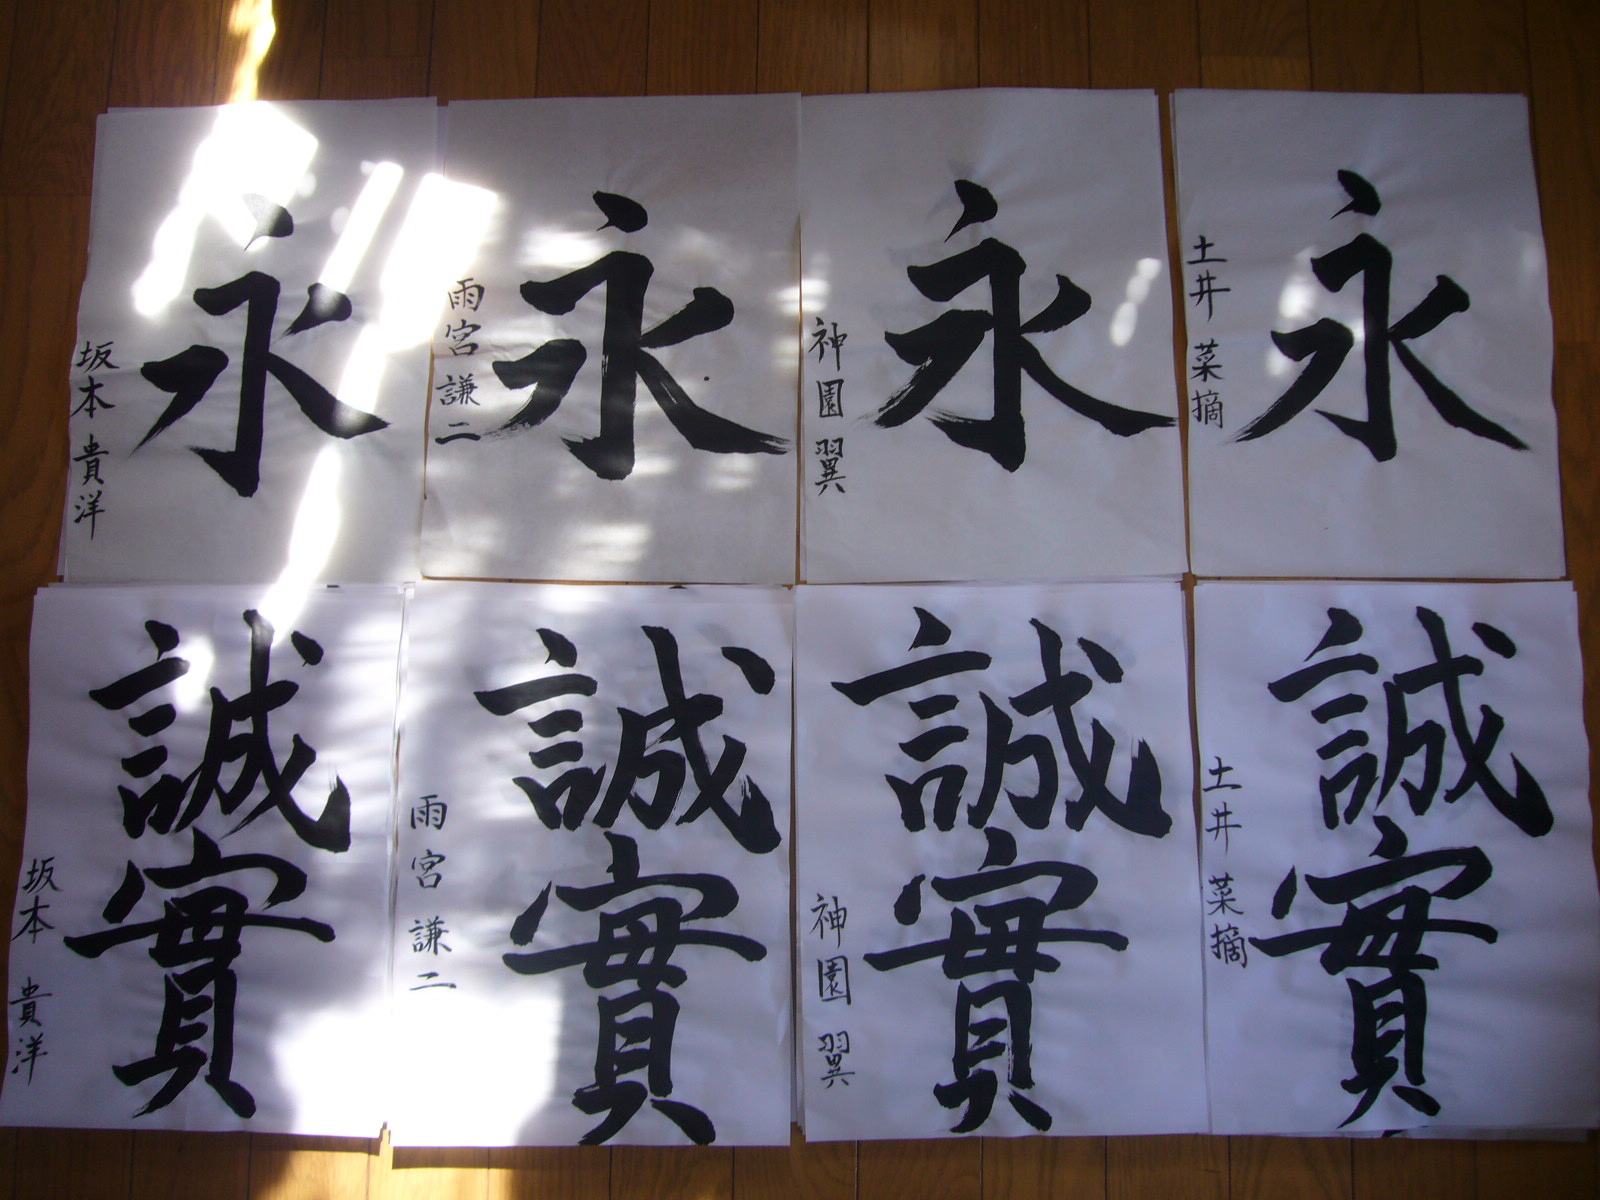 永
土井 菜摘
永
神園 翼
永
雨宮 謙二
永
坂本 貴洋
誠實
土井 菜摘
誠實
神園 翼
誠實
雨宮 謙二
誠實
坂本 貴洋